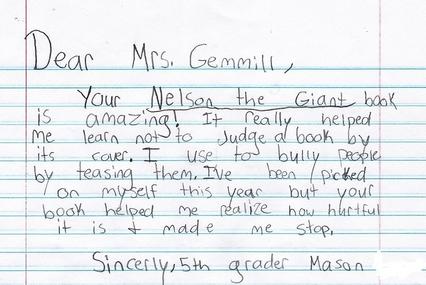 Dear Mrs. Gemmill,
Your Nelson the Giant book
is amazing! It really helped
me learn not to Judge a book by
its cover. I use to bully people
by teasing them. I've been picked
on myself this year but your
book helped me realize how hurtful
it is & made me stop.
Sincerly, 5th grader Mason